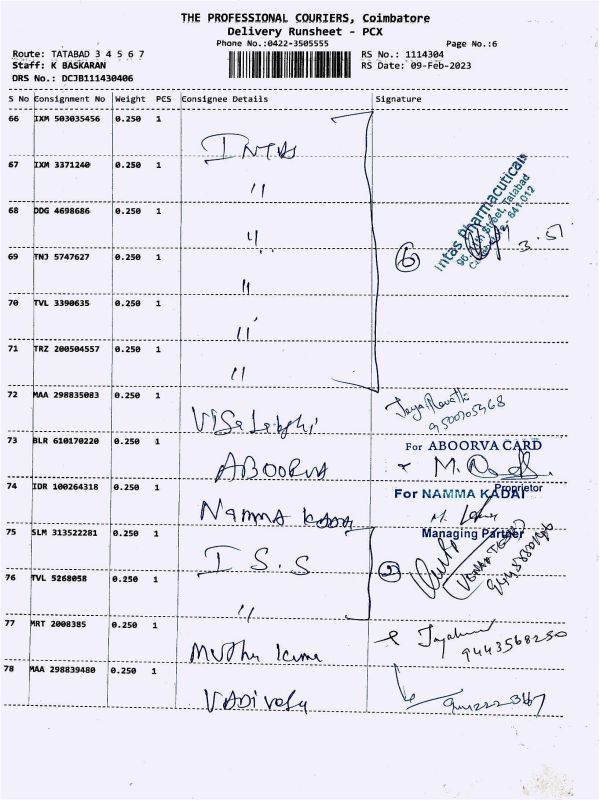 THE PROFESSIONAL COURIERS, Coimbatore
Delivery Runsheet - PCX
Phone No.:0422-3505555
Page No.:6
Route: TATABAD 3 4 5 6 7
RS No.: 1114304
Staff: K BASKARAN
RS Date: 09-Feb-2023
DRS No.: DCJB111430406
S No Consignment No Weight PCS Consignee Details Signature
66 IXM 503035456 0.250 1
INTAS
67 IXM 3371240 0.250 1
"
68 DDG 4698686 0.250 1
"
Intas Pharmacuticals
96, 11th Street, Tatabad
Coimbatore - 641 012
3.51
69 TNJ 5747627 0.250 1
6
"
70 TVL 3390635 0.250 1
"
71 TRZ 200504557 0.250 1
"
72 MAA 298835083 0.250 1
73 BLR 610170220 0.250 1
For ABOORVA CARD
ABOORVA
Proprietor
74 IDR 100264318 0.250 1
For NAMMA KADAI
NAMMA Kadai
Managing Partner
75 SLM 313522281 0.250 1
I.S.S
2
76 TVL 5268058 0.250 1
"
77 MRT 2008385 0.250 1
Muthu kumar
9443568250
78 MAA 298839480 0.250 1
VADivelu